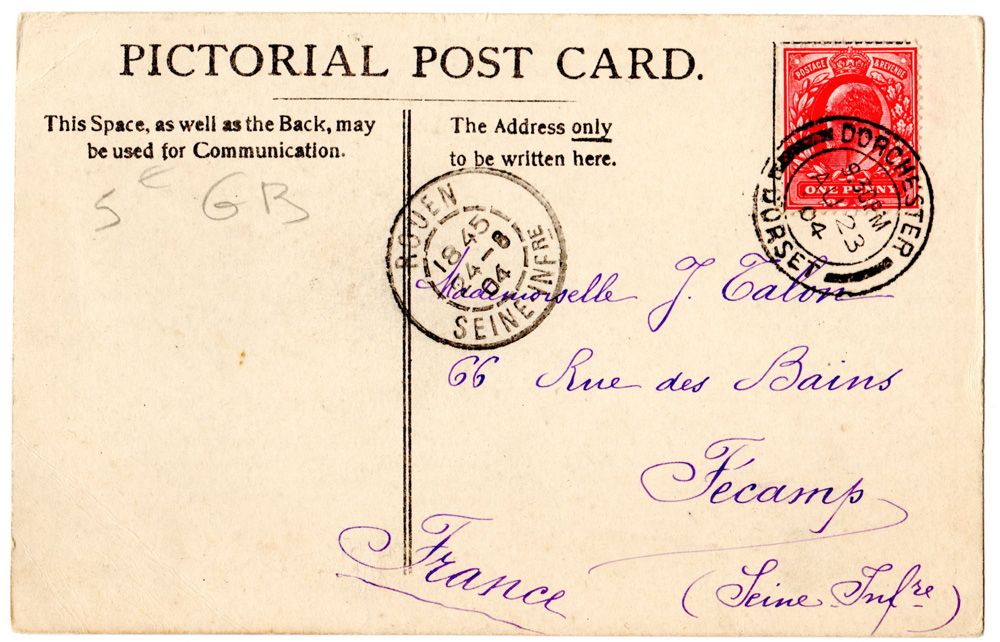 PICTORIAL POST CARD.
This Space, as well as the Back, may
be used for Communication.
The Address only
to be written here.
5e GB
POSTAGE & REVENUE
ONE PENNY
DORCHESTER
9.30PM
23
04
DORSET
ROUEN
18 45
24-8
04
SEINE INFRE
Mademoiselle J. Talon
66 Rue des Bains
Fécamp
(Seine Infre)
France